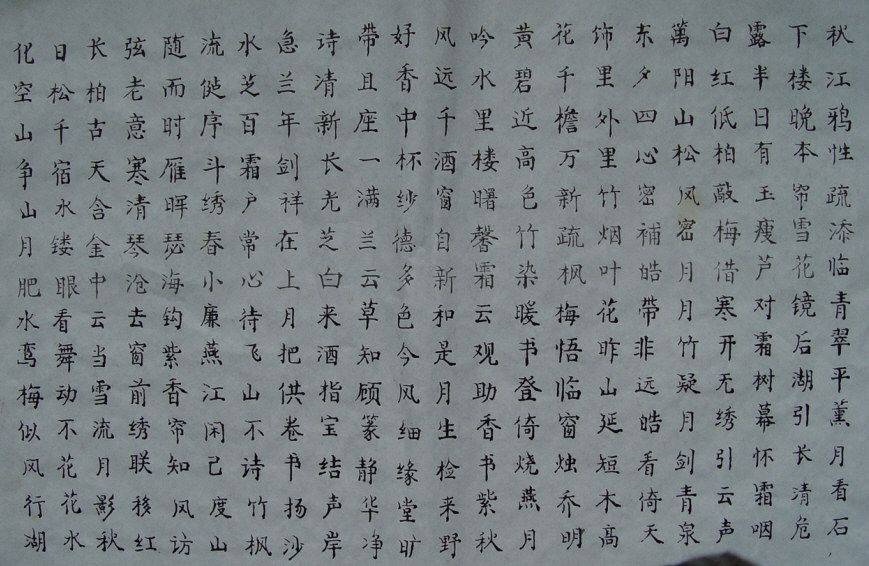 秋江鸦性疏添临青翠平薰月看石
下楼晚本帘雪花镜后湖引长清危
露半日有玉瘦芦对霜树幕怀霜咽
白红低柏敲梅借寒开无绣引云声
萬阳山松风密月月竹疑月剑青泉
东夕四心密補皓帶非远皓看倚天
饰里外里竹烟叶花昨山延短木高
花千檐万新疏枫梅悟临窗烛乔明
黄碧近高色竹染暖书登倚烧燕月
吟水里楼曙馨霜云观助香书紫秋
风远千酒窗自新和是月生检来野
好香中杯纱德多色今风细缘堂旷
帶且座一满兰云草知顾篆静华净
诗清新长尤芝白来酒指宝结声岸
急兰年剑祥在上月把供卷书扬沙
水芝百霜户常心待飞山不诗竹枫
流序斗绣春小廉燕江闲己度山
随而时雁晖瑟海钩紫香帘知风访
弦老意寒清琴沧去窗前绣联移红
长柏古天含金中云当雪流月影秋
日松千宿水镂眼看舞动不花花水
化空山争山月肥水鸾梅似风行湖